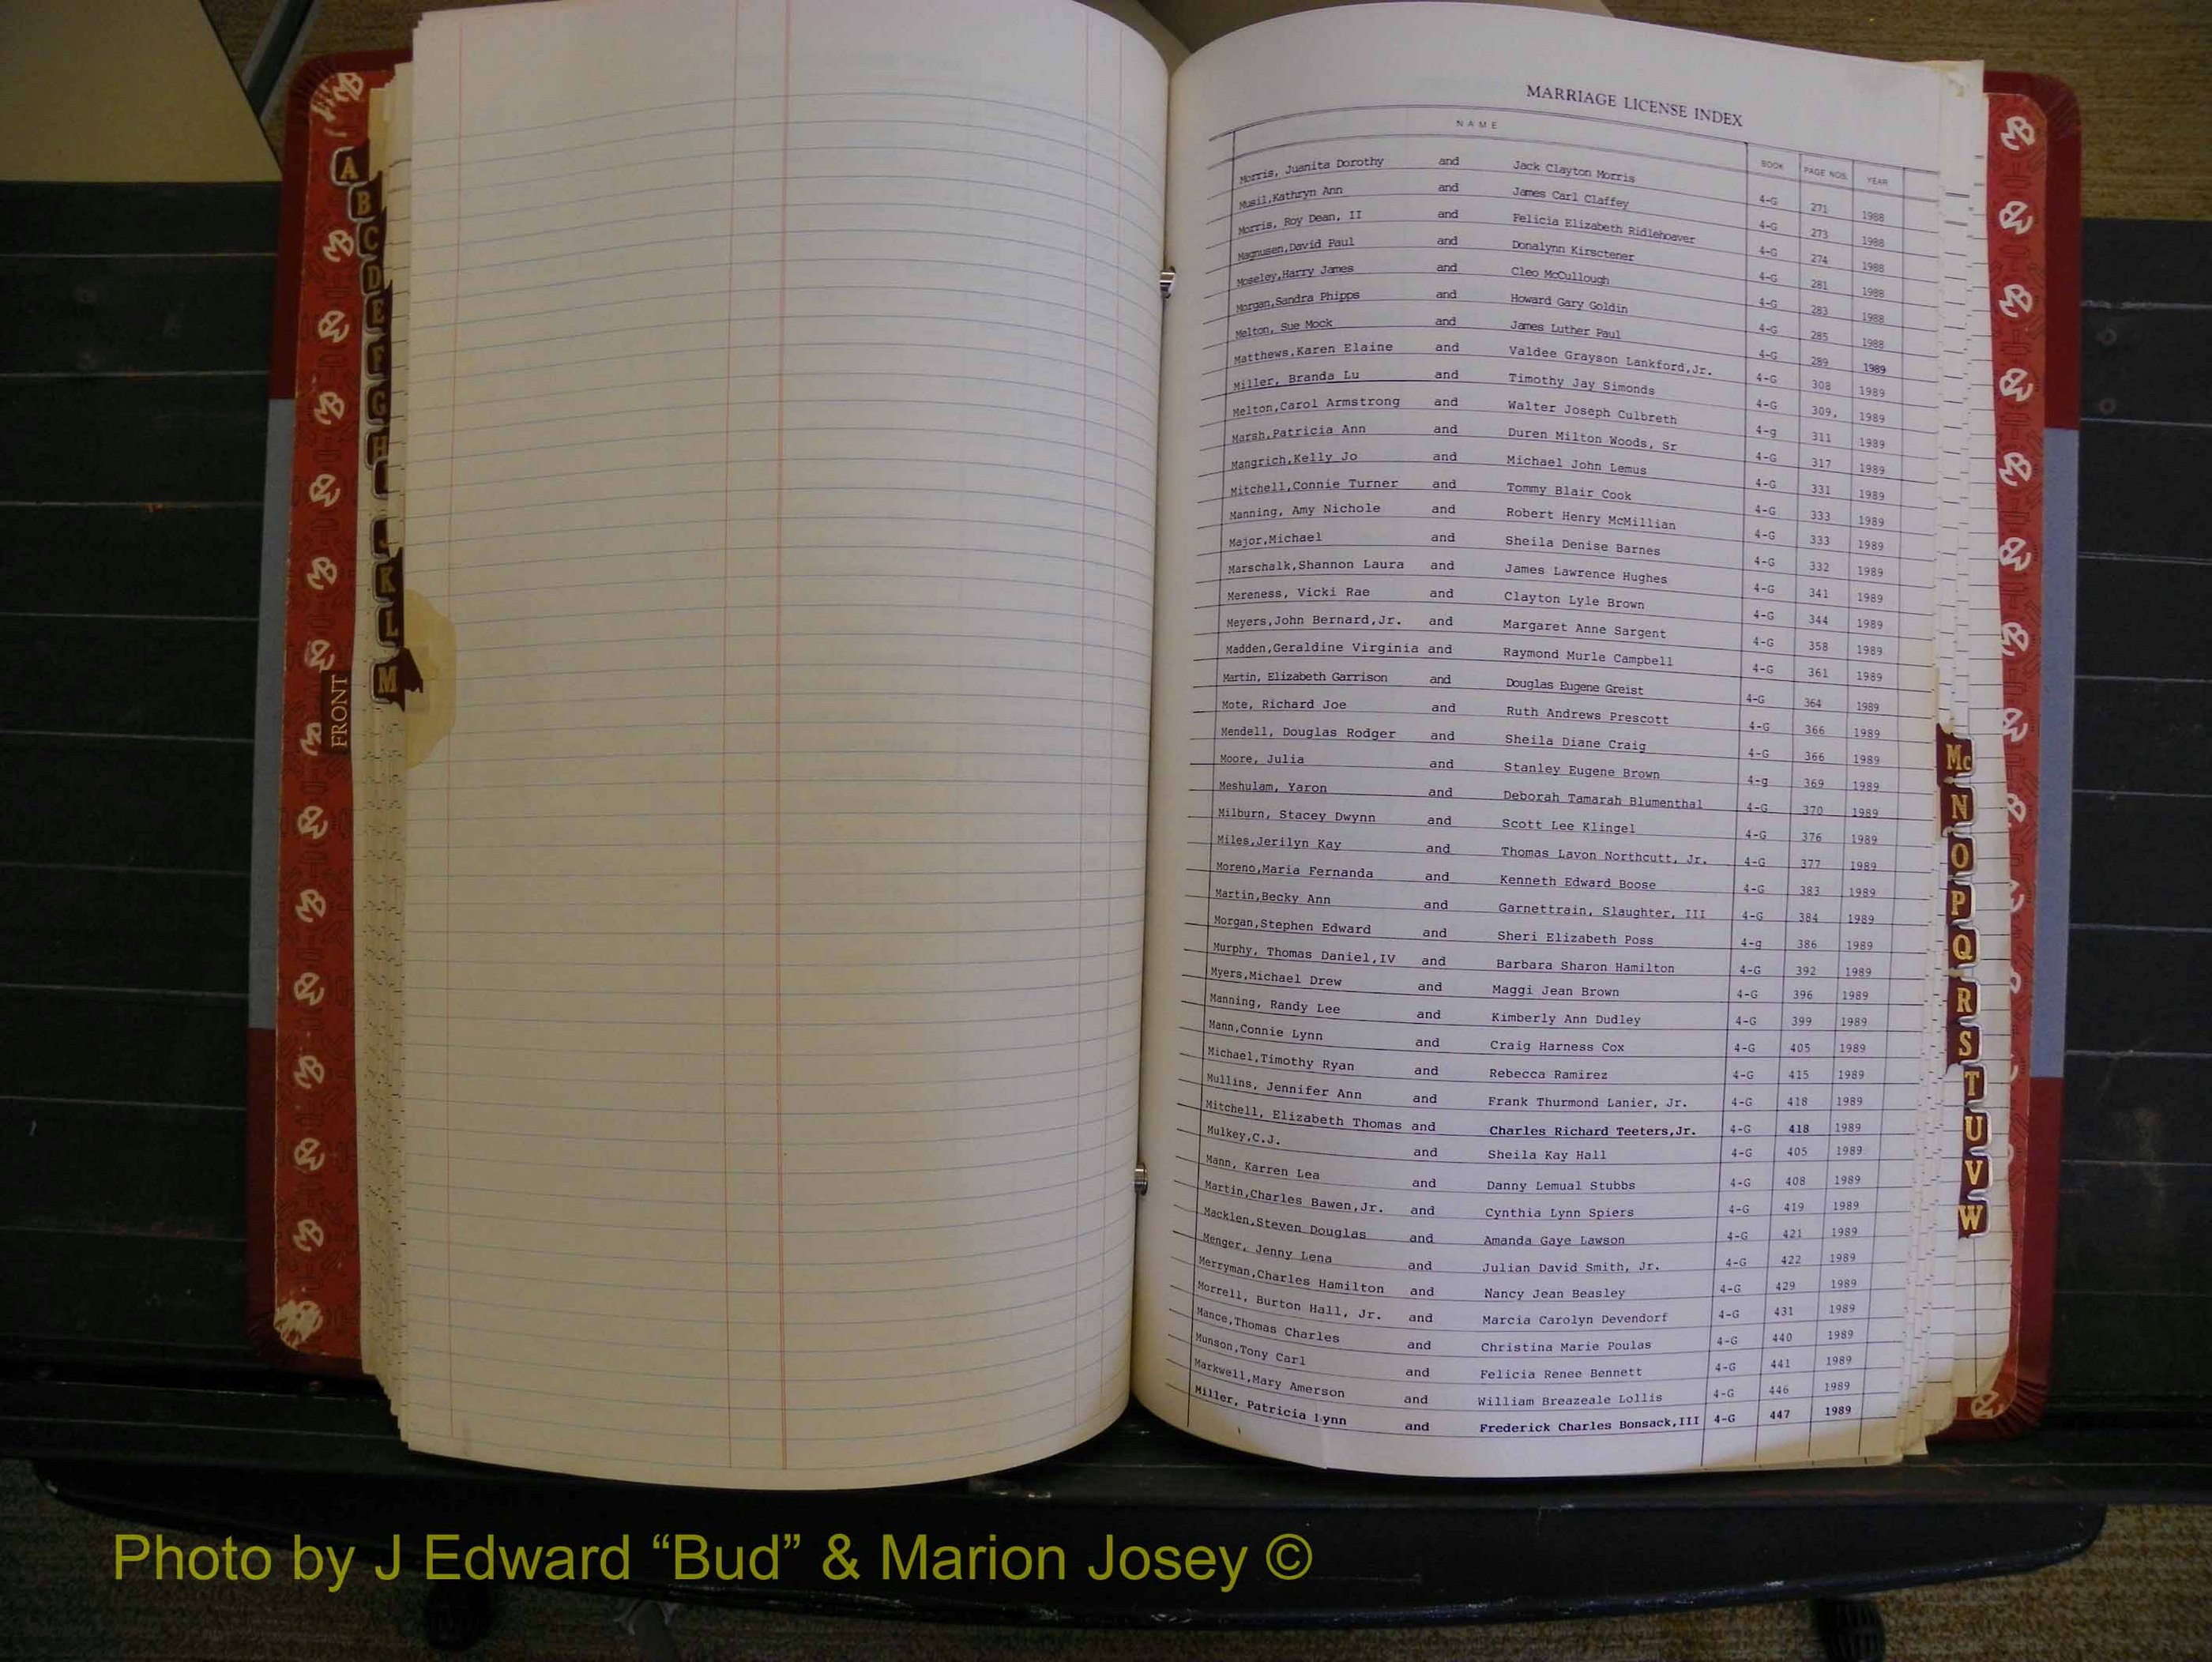 MARRIAGE LICENSE INDEX
NAME BOOK PAGE NOS. YEAR
Morris, Juanita Dorothy and Jack Clayton Morris 4-G 271 1988
Musil,Kathryn Ann and James Carl Claffey 4-G 273 1988
Morris, Roy Dean, II and Felicia Elizabeth Ridlehoever 4-G 274 1988
Magnusen,David Paul and Donalynn Kirsctener 4-G 281 1988
Moseley,Harry James and Cleo McCullough 4-G 283 1988
Morgan,Sandra Phipps and Howard Gary Goldin 4-G 285 1988
Melton, Sue Mock and James Luther Paul 4-G 289 1989
Matthews,Karen Elaine and Valdee Grayson Lankford,Jr. 4-G 308 1989
Miller, Branda Lu and Timothy Jay Simonds 4-G 309, 1989
Melton,Carol Armstrong and Walter Joseph Culbreth 4-g 311 1989
Marsh,Patricia Ann and Duren Milton Woods, Sr 4-G 317 1989
Mangrich,Kelly Jo and Michael John Lemus 4-G 331 1989
Mitchell,Connie Turner and Tommy Blair Cook 4-G 333 1989
Manning, Amy Nichole and Robert Henry McMillian 4-G 333 1989
Major,Michael and Sheila Denise Barnes 4-G 332 1989
Marschalk,Shannon Laura and James Lawrence Hughes 4-G 341 1989
Mereness, Vicki Rae and Clayton Lyle Brown 4-G 344 1989
Meyers,John Bernard,Jr. and Margaret Anne Sargent 4-G 358 1989
Madden,Geraldine Virginia and Raymond Murle Campbell 4-G 361 1989
Martin, Elizabeth Garrison and Douglas Eugene Greist 4-G 364 1989
Mote, Richard Joe and Ruth Andrews Prescott 4-G 366 1989
Mendell, Douglas Rodger and Sheila Diane Craig 4-G 366 1989
Moore, Julia and Stanley Eugene Brown 4-g 369 1989
Meshulam, Yaron and Deborah Tamarah Blumenthal 4-G 370 1989
Milburn, Stacey Dwynn and Scott Lee Klingel 4-G 376 1989
Miles,Jerilyn Kay and Thomas Lavon Northcutt, Jr. 4-G 377 1989
Moreno,Maria Fernanda and Kenneth Edward Boose 4-G 383 1989
Martin,Becky Ann and Garnettrain, Slaughter, III 4-G 384 1989
Morgan,Stephen Edward and Sheri Elizabeth Poss 4-g 386 1989
Murphy, Thomas Daniel,IV and Barbara Sharon Hamilton 4-G 392 1989
Myers,Michael Drew and Maggi Jean Brown 4-G 396 1989
Manning, Randy Lee and Kimberly Ann Dudley 4-G 399 1989
Mann,Connie Lynn and Craig Harness Cox 4-G 405 1989
Michael,Timothy Ryan and Rebecca Ramirez 4-G 415 1989
Mullins, Jennifer Ann and Frank Thurmond Lanier, Jr. 4-G 418 1989
Mitchell, Elizabeth Thomas and Charles Richard Teeters,Jr. 4-G 418 1989
Mulkey,C.J. and Sheila Kay Hall 4-G 405 1989
Mann, Karren Lea and Danny Lemual Stubbs 4-G 408 1989
Martin,Charles Bawen,Jr. and Cynthia Lynn Spiers 4-G 419 1989
Macklen,Steven Douglas and Amanda Gaye Lawson 4-G 421 1989
Menger, Jenny Lena and Julian David Smith, Jr. 4-G 422 1989
Merryman,Charles Hamilton and Nancy Jean Beasley 4-G 429 1989
Morrell, Burton Hall, Jr. and Marcia Carolyn Devendorf 4-G 431 1989
Mance,Thomas Charles and Christina Marie Poulas 4-G 440 1989
Munson,Tony Carl and Felicia Renee Bennett 4-G 441 1989
Markwell,Mary Amerson and William Breazeale Lollis 4-G 446 1989
Miller, Patricia Lynn and Frederick Charles Bonsack,III 4-G 447 1989
A
B
C
D
E
F
G
H
I
J
K
L
M
FRONT
Mc
N
O
P
Q
R
S
T
U
V
W
Photo by J Edward “Bud” & Marion Josey ©